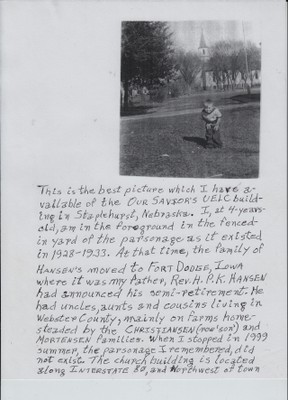 This is the best picture which I have a-
vailable of the OUR SAVIOR'S UELC build-
ing in Staplehurst, Nebraska. I, at 4-years-
old, am in the foreground in the fenced-
in yard of the parsonage as it existed
in 1928-1933. At that time, the family of
HANSEN'S moved to FORT DODGE, IOWA
where it was my father, Rev. H.P.K. HANSEN
had announced his semi-retirement. He
had uncles, aunts and cousins living in
Webster County, mainly on farms home-
steaded by the CHRISTIANSEN (now 'son') and
MORTENSEN families. When I stopped in 1999
summer, the parsonage I remembered, did
not exist. The church building is located
along INTERSTATE 80, and Northwest of town